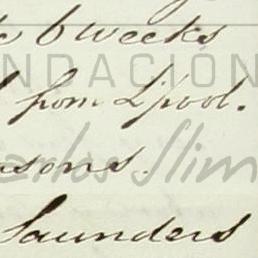 6 weeks
FUNDACIÓN
from L'pool.
Carlos Slim
sons.
Saunders